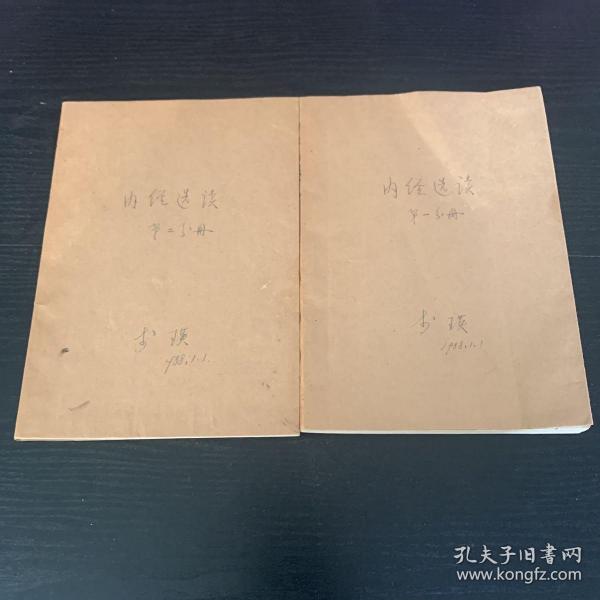 内经选读
第二分册
瑛
1988.1.1.
内经选读
第一分册
瑛
1988.1.1
孔夫子旧書网
www.kongfz.com